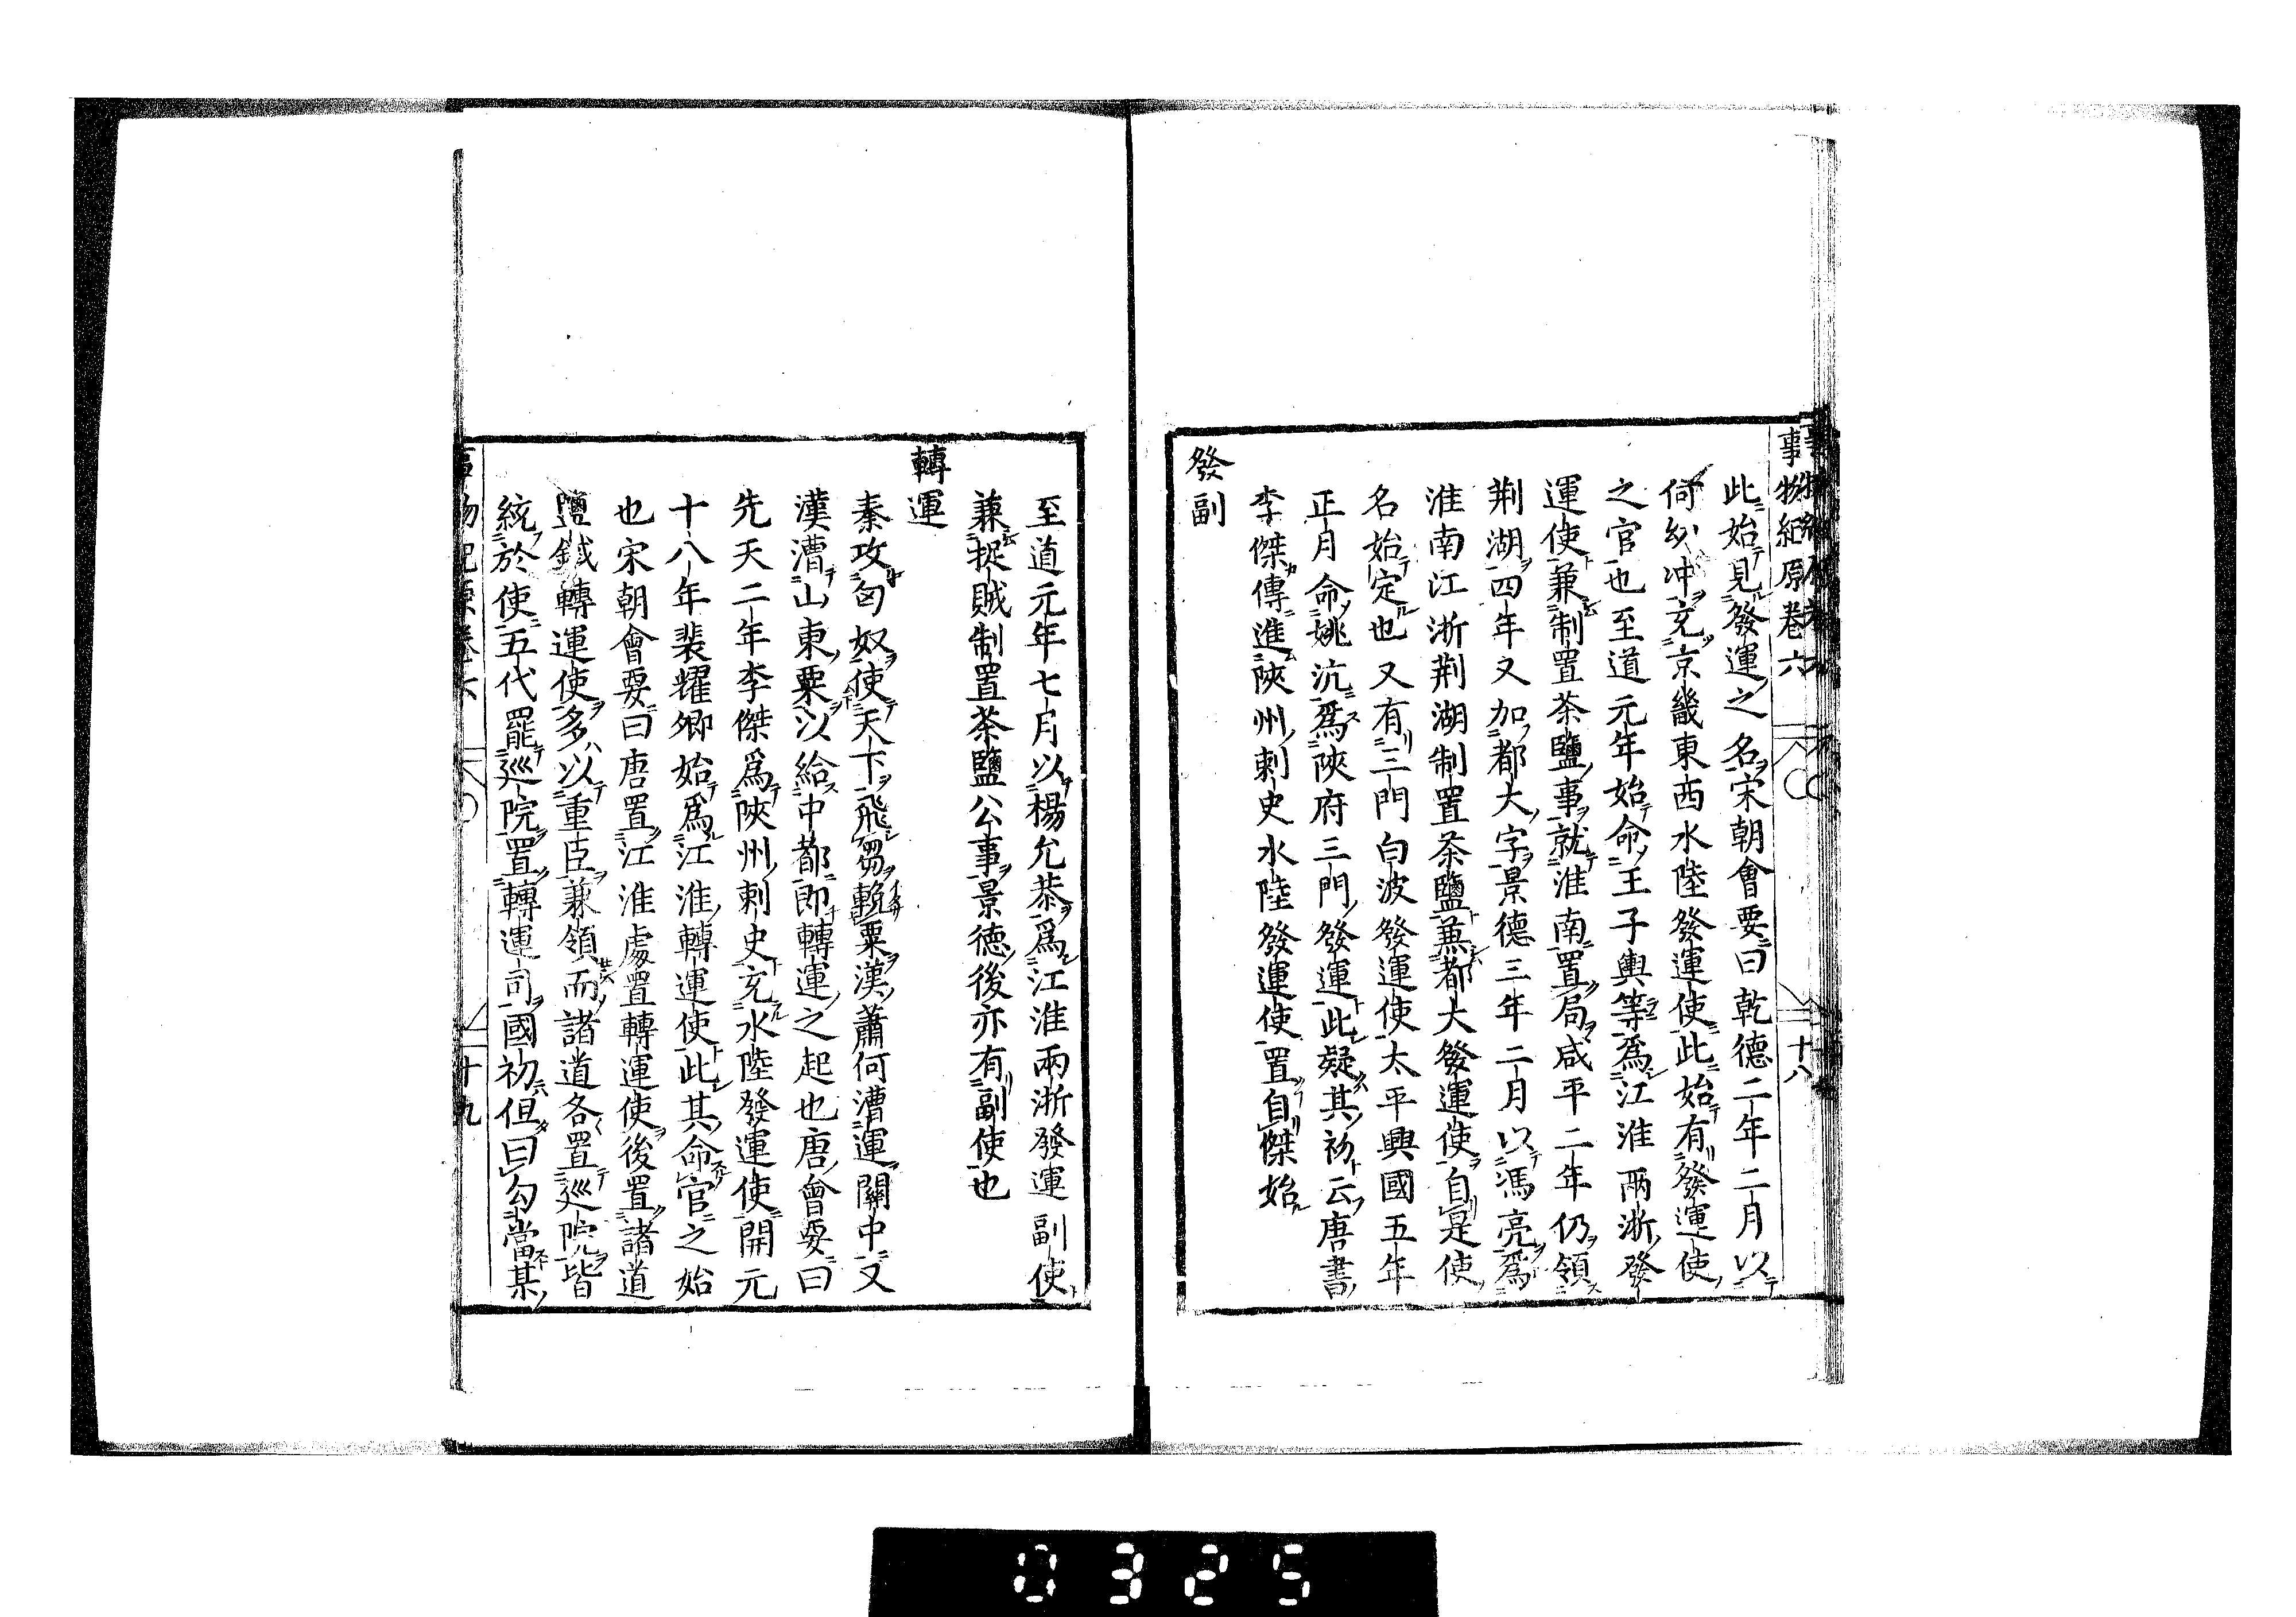 事物紀原卷六
十八
此始見發運之名宋朝會要曰乾德二年二月以
何幼冲充京畿東西水陸發運使此始有發運使
之官也至道元年始命王子輿等爲江淮兩浙發
運使兼制置茶鹽事就淮南置局咸平二年仍領
荆湖四年又加都大字景德三年二月以馮亮爲
淮南江浙荆湖制置茶鹽兼都大發運使自是使
名始定也又有三門白波發運使太平興國五年
正月命姚沆爲陝府三門發運此疑其初云唐書
李傑傳進陝州刺史水陸發運使置自傑始
發副
至道元年七月以楊允恭爲江淮兩浙發運副使
兼捉賊制置茶鹽公事景德後亦有副使也
轉運
秦攻匈奴使天下飛芻輓粟漢蕭何漕運關中又
漢漕山東粟以給中都即轉運之起也唐會要曰
先天二年李傑爲陝州刺史充水陸發運使開元
十八年裴耀卿始爲江淮轉運使此其命官之始
也宋朝會要曰唐置江淮處置轉運使後置諸道
鹽鐵轉運使多以重臣兼領而諸道各置巡院皆
統於使五代罷巡院置轉運司國初但曰勾當某
十九
0325